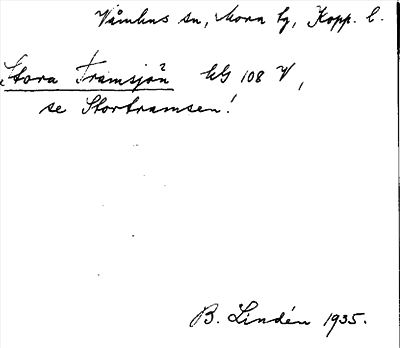 Våmhus sn, Mora tg, Kopp. l.
Stora Tramsjön KG 108 V,
se Stortramsen!
B. Lindén 1935.